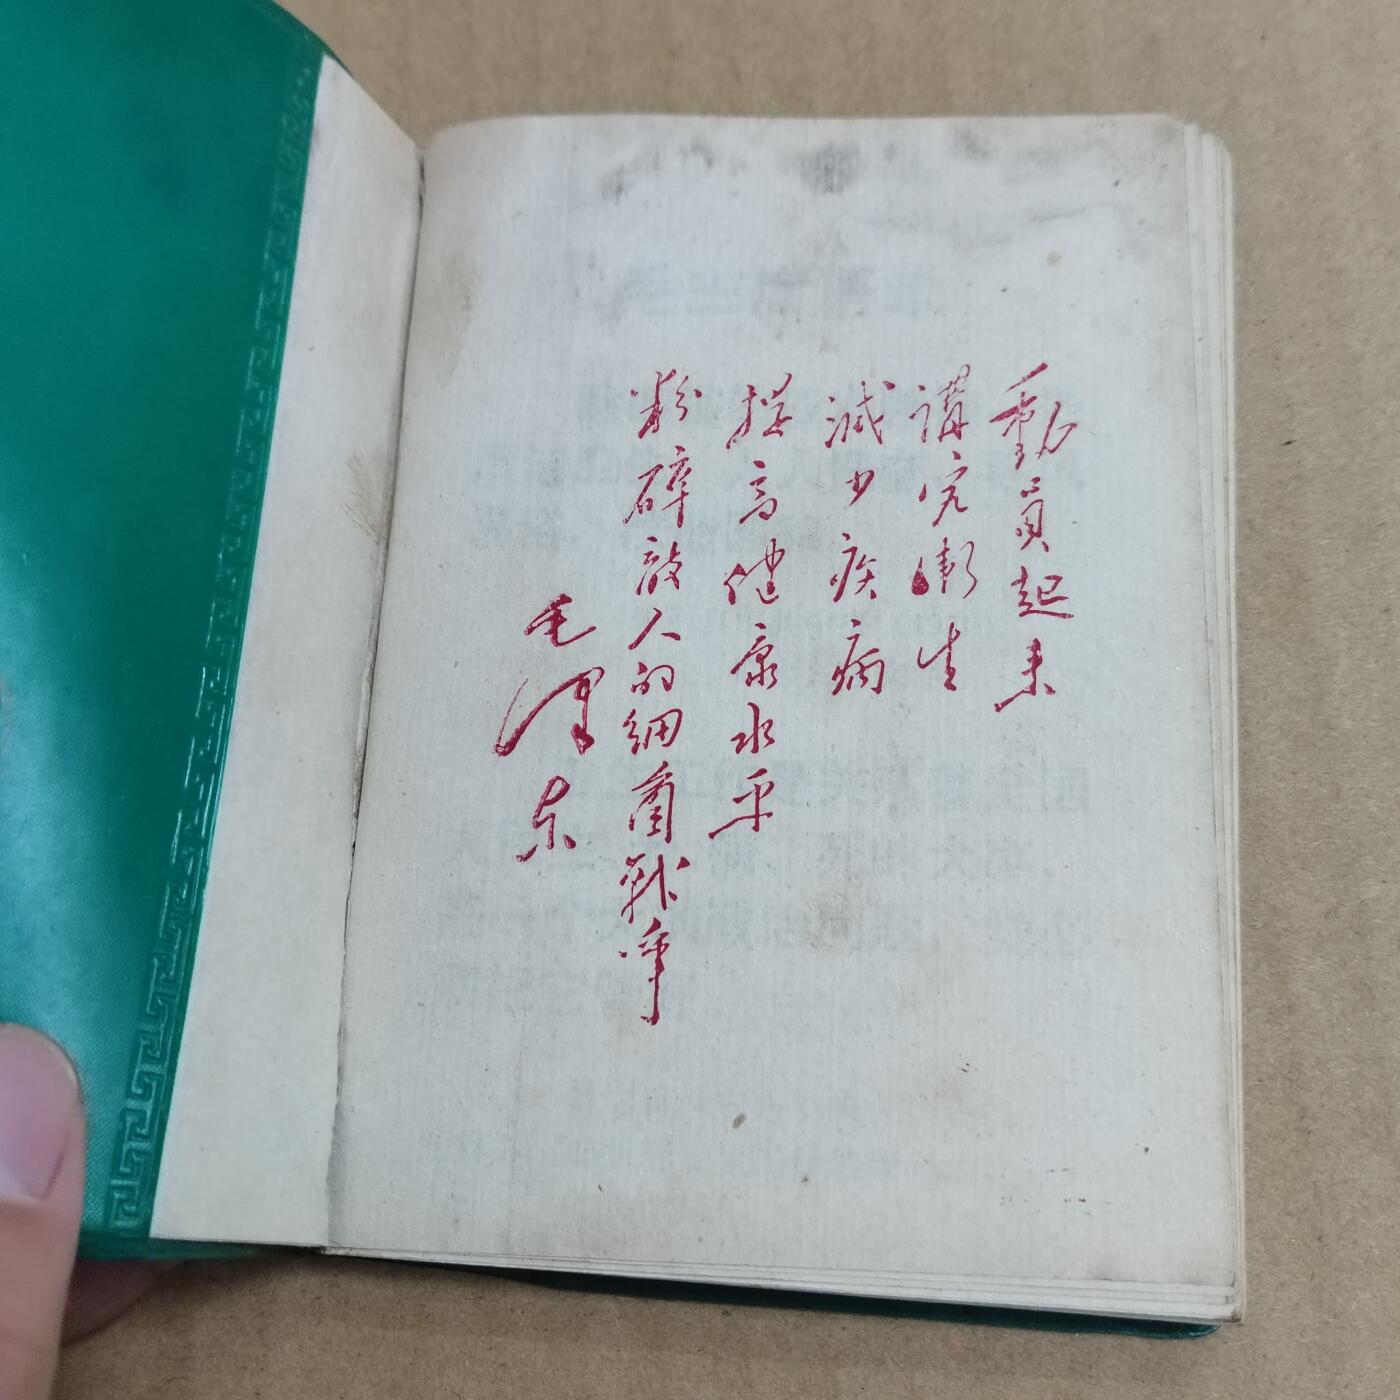 動員起来
講究衛生
減少疾病
提高健康水平
粉碎敵人的细菌戰爭
毛澤东